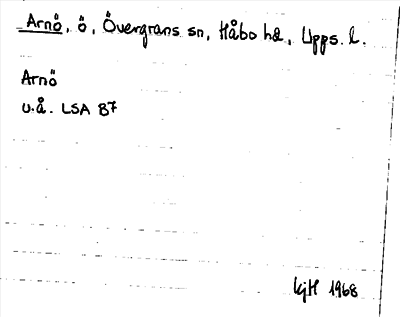 Arnö, ö, Övergrans sn, Håbo hd, Upps. l.
Arnö
u.å. LSA B7
KjH 1968